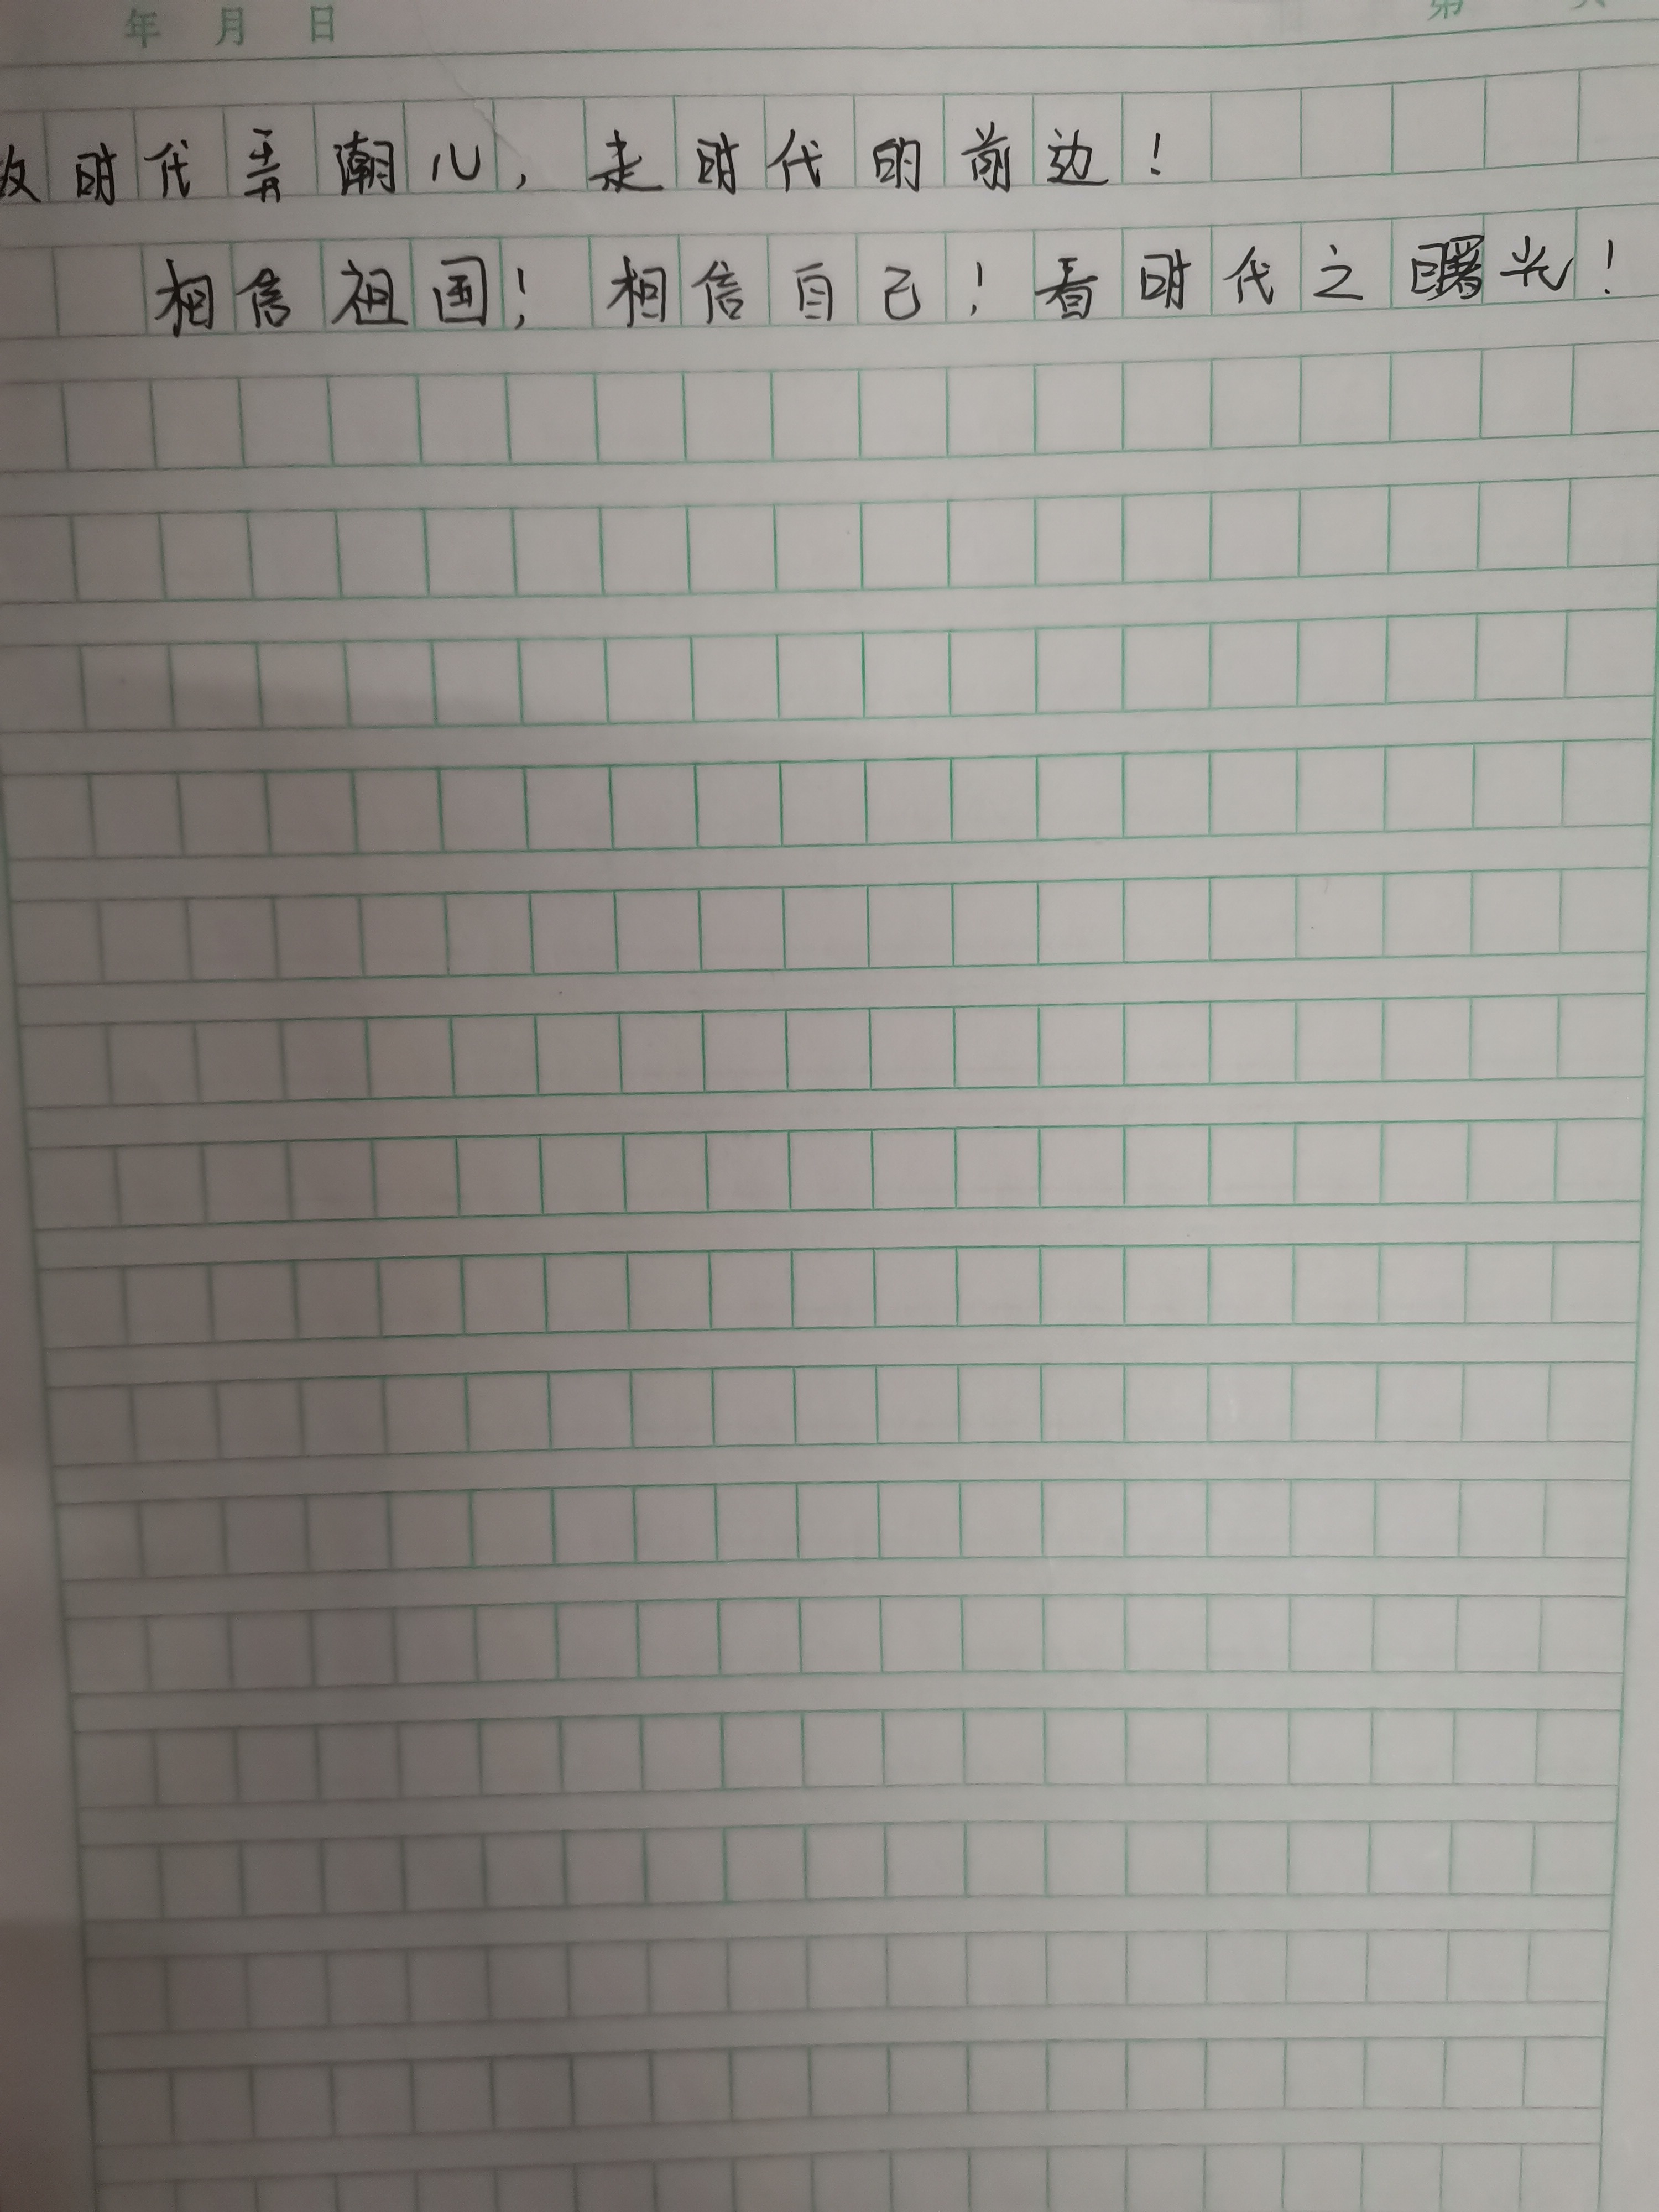 年 月 日 第 页
时代弄潮儿，走时代的前边！
相信祖国！相信自己！看时代之曙光！